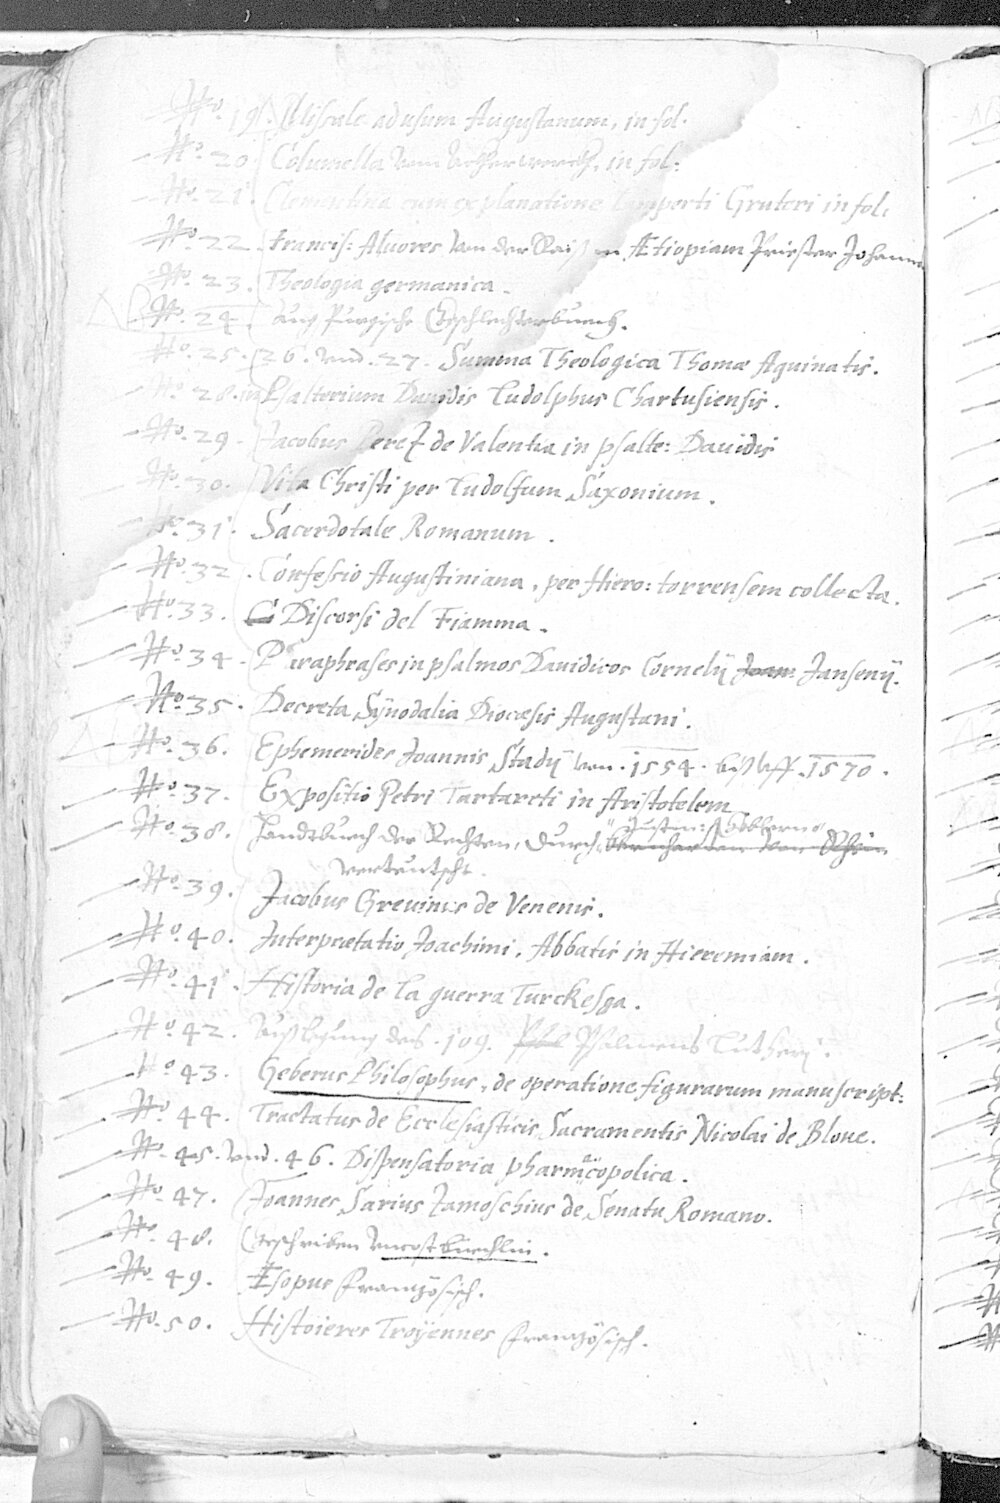 No. 19. Missale ad usum Augustanum, in fol.
No. 20. Columella vom in fol:
No. 21. Clementina cum explanatione Lamperti Gruteri in fol:
No. 22. Francis: Aluores von der Raiß in Ætiopiam Priester Johanns
No. 23. Theologia germanica.
No. 24. Augspurgische Geschlechterbuech.
No. 25. 26. vnd. 27. Summa Theologica Thomæ Aquinatis.
No. 28. in Psalterium Dauidis Ludolphus Chartusiensis.
No. 29. Jacobus Perez de Valentia in psalte: Dauidis
No. 30. Vita Christi per Ludolfum Saxonium.
No. 31. Sacerdotale Romanum.
No. 32. Confessio Augustiniana, per Hiero: torrensem collecta.
No. 33. Discorsi del Fiamma.
No. 34. Paraphrases in psalmos Dauidicos Cornelÿ Joan: Jansenÿ.
No. 35. Decreta Sÿnodalia Diocæsis Augustani.
No. 36. Ephemerides Joannis Stadÿ von. 1554. biß vff. 1570.
No. 37. Expositio Petri Tartareti in Aristotelem
No. 38. Handtbuech der Rechten, durch Justin: Goblerum
verteutscht.
No. 39. Jacobus Greuinus de Venenis.
No. 40. Interpretatio Joachimi. Abbatis in Hieremiam.
No. 41. Historia de la guerra Turckesga.
No. 42. Außlegung deß. 109. Psalmens Lutherj.
No. 43. Geberus Philosophus, de operatione figurarum manuscript:
No. 44. Tractatus de Ecclesiasticis Sacramentis Nicolai de Bloue.
No. 45. vnd. 46. Dispensatoria pharmacopolica.
No. 47. Joannes Sarius Zamoschius de Senatu Romano.
No. 48. Geschriben büechlin.
No. 49. Æsopus französisch.
No. 50. Histoieres Troÿennes französisch.